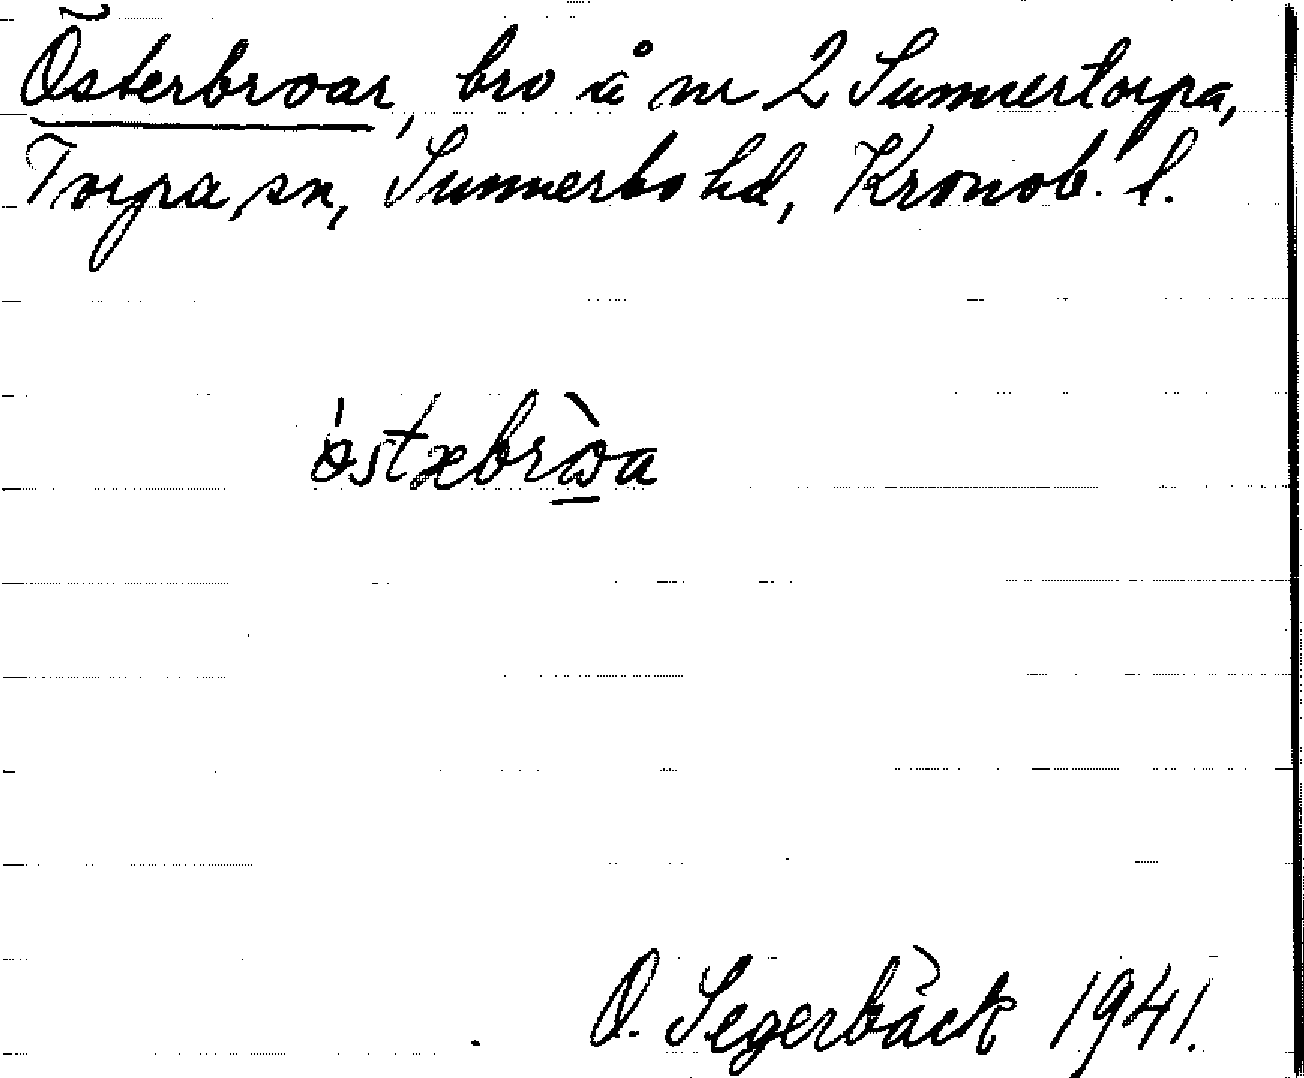 Österbroar, bro å nr 2 Sunnertorpa,
Torpa sn, Sunnerbo hd, Kronob. l.
östæbròa
O. Segerbäck 1941.